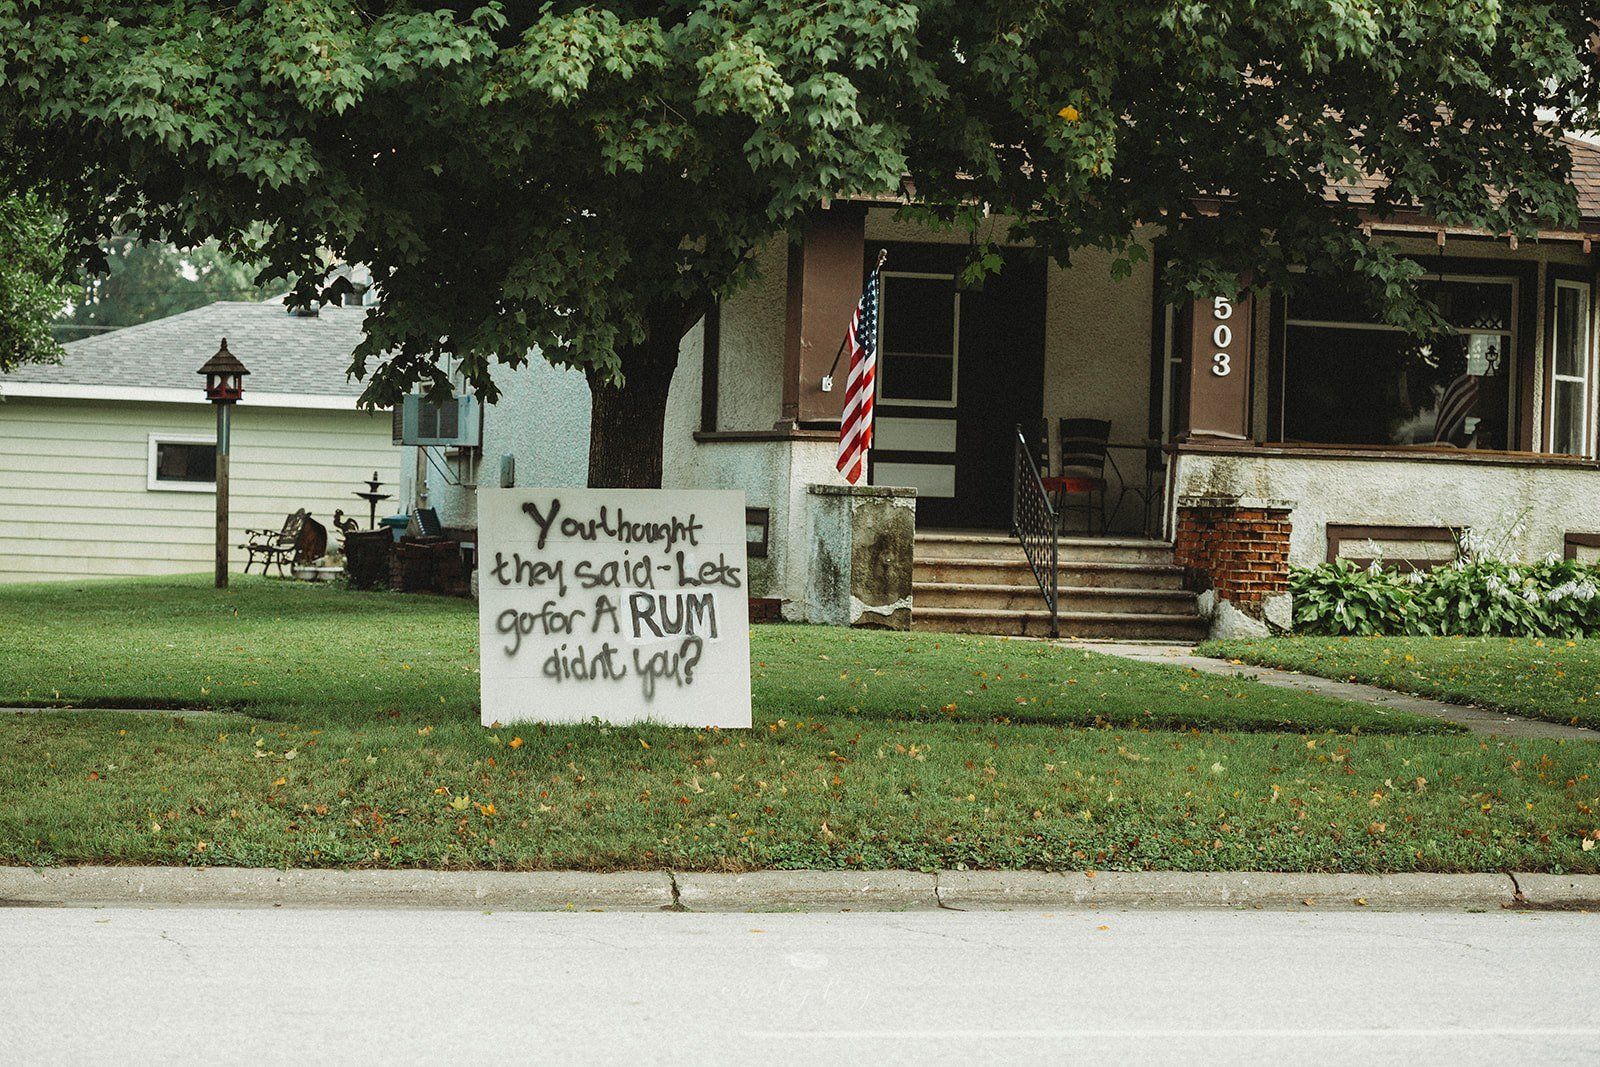 You thought
they said - Lets
go for A RUM
didnt you?
503